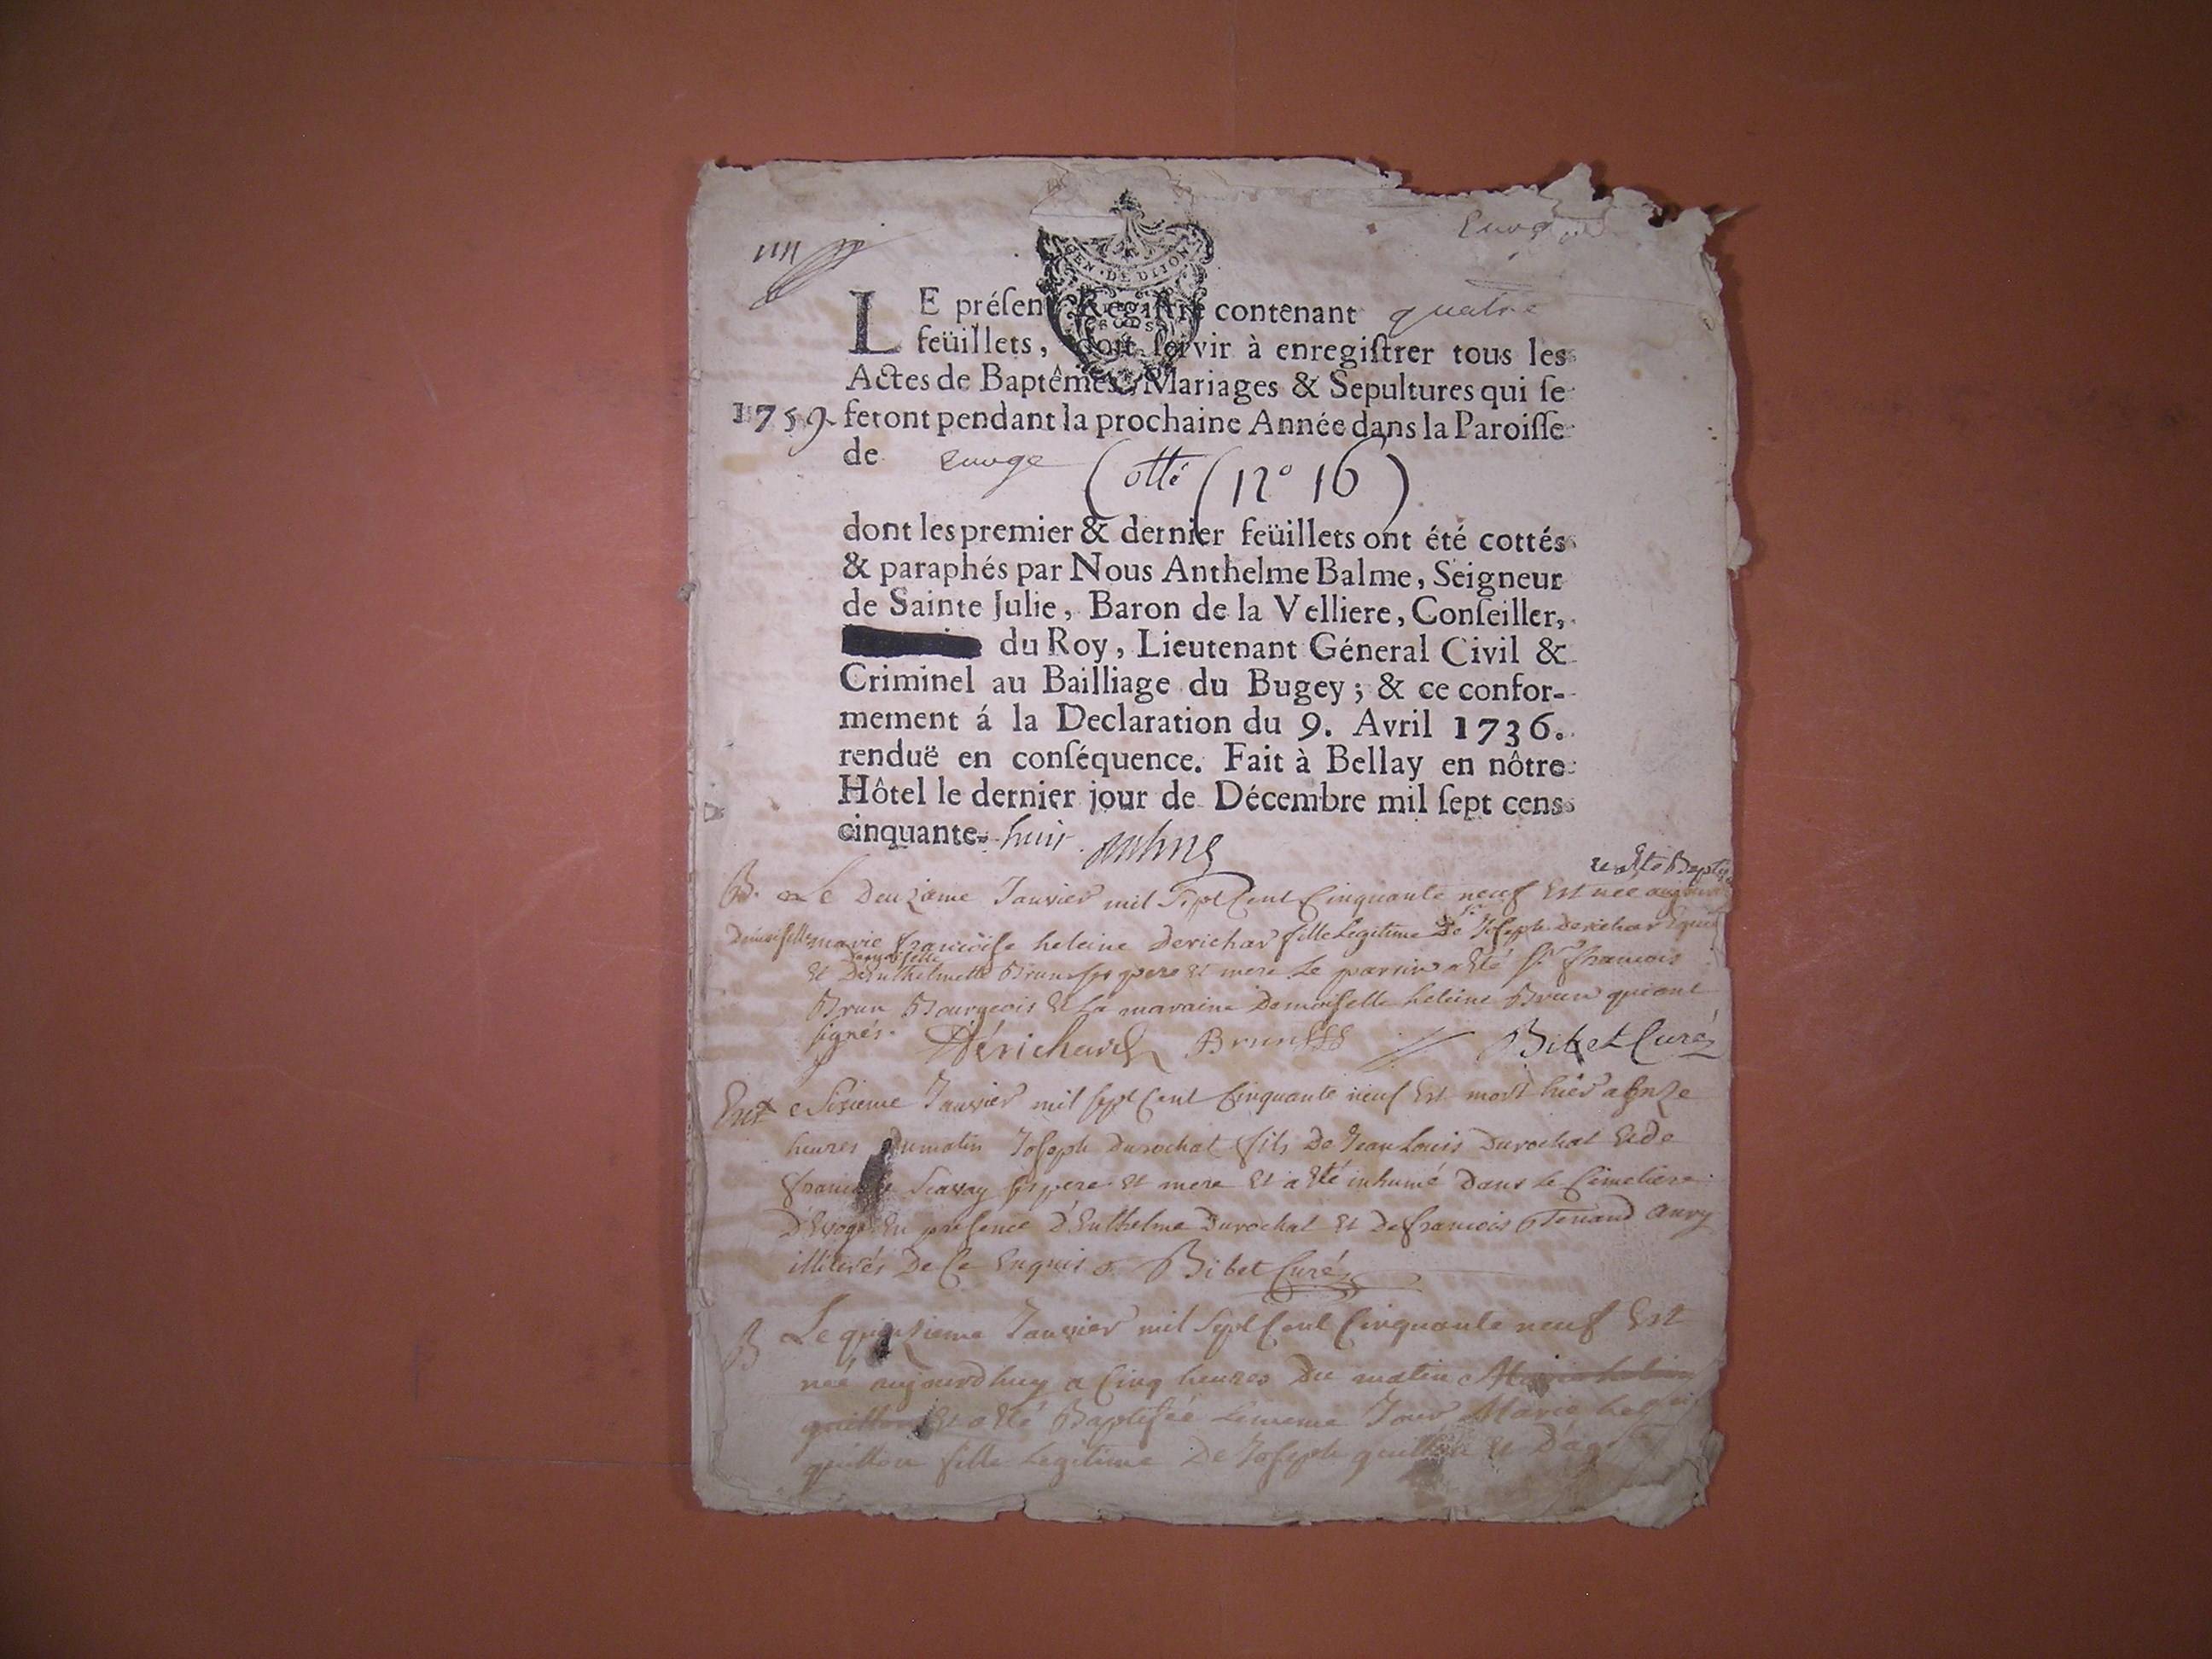 GEN · DE DIJON
LE préſent Regiſtre contenant quatre
feüillets, doit ſervir à enregiſtrer tous les
Actes de Baptêmes, Mariages & Sepultures qui ſe
1759 feront pendant la prochaine Année dans la Paroiſſe
de euoge Cotté (N° 16)
dont les premier & dernier feüillets ont été cottés
& paraphés par Nous Anthelme Balme, Seigneur
de Sainte Julie, Baron de la Velliere, Conſeiller,
du Roy, Lieutenant Géneral Civil &
Criminel au Bailliage du Bugey; & ce confor-
mement á la Declaration du 9. Avril 1736.
renduë en conſéquence. Fait à Bellay en nôtre
Hôtel le dernier jour de Décembre mil ſept cens
cinquante-huit
et a Eté Baptisée
B. Le Deuzieme Janvier mil Sept Cent Cinquante neuf Est née
Demoiselle marie francoise heleine Derichar fille Legitime De Sr Joseph Derichar
Et Demoiselle D'Enthelmette Brun ses pere et mere Le parrin a Eté Sr francois
Brun Bourgeois Et La maraine Demoiselle heleine Brun qui ont
signés. Dérichard Brun Bibet Curé
Le Sixieme Janvier mil sept Cent Cinquante neuf Est mort hier a Onze
heures Du matin Joseph Durochat fils De Jean Louis Durochat et de
Savay ses pere et mere Et a Eté inhumé Dans Le Cimetiere
D'Evoge En presence D'Enthelme Durochat et De francois Tenand
illiterés De Ce Enquis Bibet Curé
B Le quinzieme Janvier mil Sept Cent Cinquante neuf Est
neé aujourdhuy a Cinq heures Du matin
Et a Eté Baptiseé Le meme Jour Marie
guillon fille Legitime De Joseph guillon et